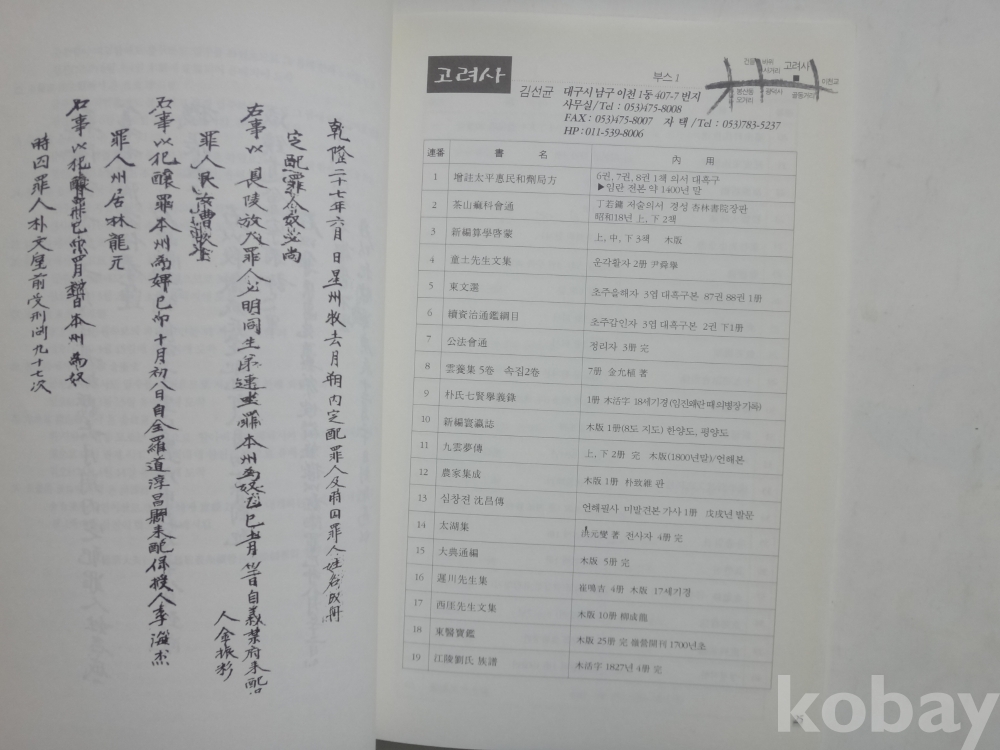 乾隆二十七年六月 日星州牧去月朔內定配罪人及時囚罪人姓名成冊
定配罪人
右事以 長陵放火罪人 明同生弟連坐罪本州為奴 自義 府來配
人金振彩
罪人
右事以犯 罪本州為婢己卯十月初八日自全羅道淳昌縣來配保授人李海杰
罪人州居林龍元
右事以犯 本州為奴
時囚罪人朴文 前受刑問九十七次
고려사
부스 1
김선균 대구시 남구 이천 1동 407-7 번지
사무실/Tel : 053)475-8008
FAX : 053)475-8007 자 택/Tel : 053)783-5237
HP : 011-539-8006
고려사
이천교
봉산동
오거리
連番 書 名 內 用
1 增註太平惠民和劑局方 6권, 7권, 8권 1책 의서 대흑구
▶임란 전본 약 1400년 말
2 茶山麻科會通 丁若鏞 저술의서 경성 杏林書院장판
昭和18년 上, 下 2책
3 新編算學啓蒙 上, 中, 下 3책 木版
4 童土先生文集 운각활자 2冊 尹舜擧
5 東文選 초주을해자 3엽 대흑구본 87권 88권 1冊
6 續資治通鑑綱目 초주갑인자 3엽 대흑구본 2권 下1冊
7 公法會通 정리자 3冊 完
8 雲養集 5卷 속집2卷 7冊 金允植 著
9 朴氏七賢擧義錄 1冊 木活字 18세기경(임진왜란 때 의병장 기록)
10 新編寰瀛誌 木版 1冊(8도 지도) 한양도, 평양도
11 九雲夢傳 上, 下 2冊 完 木版(1800년말)/언해본
12 農家集成 木版 1冊 朴致維 판
13 심창전 沈昌傳 언해필사 미발견본 가사 1冊 戊戌년 발문
14 太湖集 洪元燮 著 전사자 4冊 完
15 大典通編 木版 5冊 完
16 遲川先生集 崔鳴吉 4冊 木版 17세기경
17 西厓先生文集 木版 10冊 柳成龍
18 東醫寶鑑 木版 25冊 完 嶺營開刊 1700년초
19 江陵劉氏 族譜 木活字 1827년 4冊 完
kobay